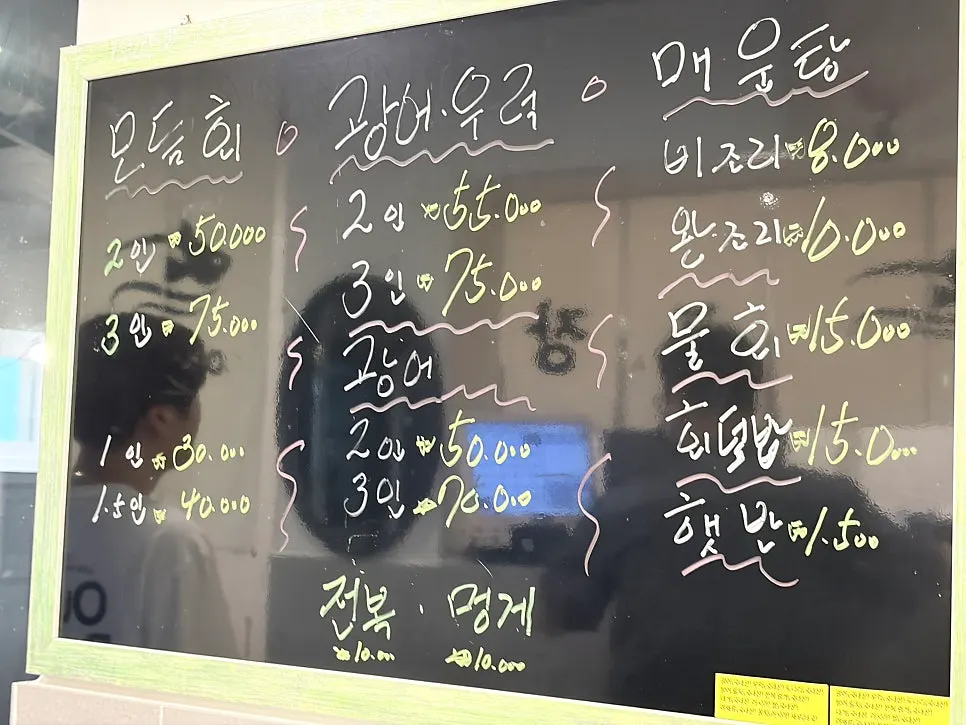 모듬회
2인 ₩50.000
3인 ₩75.000
1인 ₩30.000
1.5인 ₩40.000
광어·우럭
2인 ₩55.000
3인 ₩75.000
광어
2인 ₩50.000
3인 ₩70.000
전복 · 멍게
₩10.000 ₩10.000
매운탕
비조리 ₩8.000
완조리 ₩10.000
물회 ₩15.000
회덮밥 ₩15.000
햇반 ₩1.500